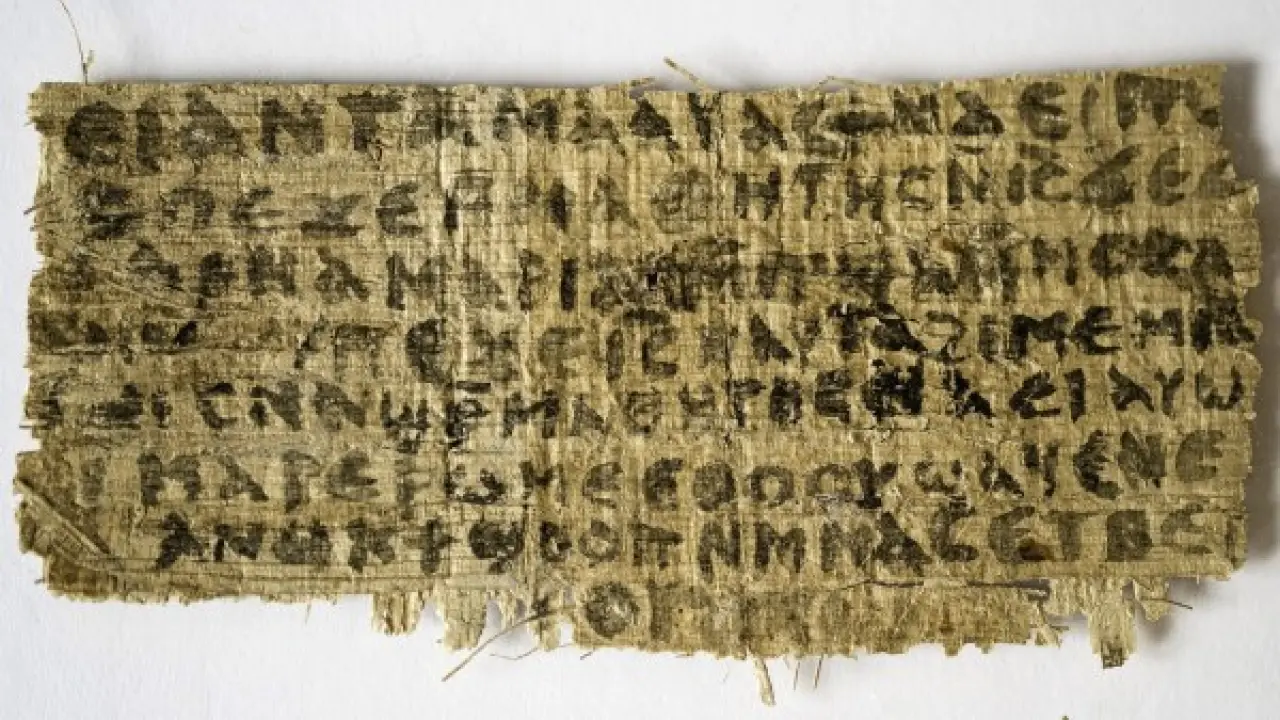 ⲉⲓ ⲁⲛ ⲧⲁⲙⲁⲁⲩ ⲁⲥϯ ⲛⲁⲉⲓ ⲡ
ⲡⲉϫⲉ ⲙⲙⲁⲑⲏⲧⲏⲥ ⲛⲓ̅ⲥ̅ ϫⲉ ⲥ
ⲁⲣⲛⲁ ⲙⲁⲣⲓⲁⲙ ⲙⲡϣⲁ ⲙⲙⲟⲥ ⲁⲛ
ⲡⲉϫⲉ ⲓ̅ⲥ̅ ⲛⲁⲩ ⲧⲁϩⲓⲙⲉ ⲙⲛ
ⲥⲛⲁϣⲣ̅ⲙⲁⲑⲏⲧⲏⲥ ⲛⲁⲉⲓ ⲁⲩⲱ
ⲓ ⲙⲁⲣⲉⲣⲱⲙⲉ ⲉⲑⲟⲟⲩ ϣⲁϥⲉ ⲛⲉ
ⲁⲛⲟⲕ ϯϣⲟⲟⲡ ⲛⲙⲙⲁⲥ ⲉⲧⲃⲉ
ⲟ